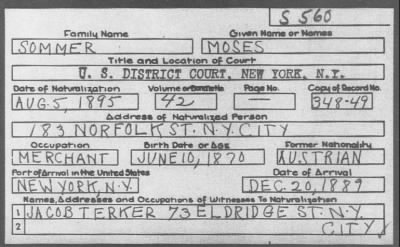 S 560
Family Name Given Name or Names
SOMMER MOSES
Title and Location of Court
U. S. DISTRICT COURT, NEW YORK, N.Y.
Date of Naturalization Volume or Bundle No. Page No. Copy of Record No.
AUG. 5, 1895 42 — 348-49
Address of Naturalized Person
183 NORFOLK ST. N.Y. CITY
Occupation Birth Date or Age Former Nationality
MERCHANT JUNE 10, 1870 AUSTRIAN
Port of Arrival in the United States Date of Arrival
NEW YORK, N.Y. DEC. 20, 1889
Names, Addresses and Occupations of Witnesses To Naturalization
1 JACOB TERKER 73 ELDRIDGE ST. N.Y.
2 CITY